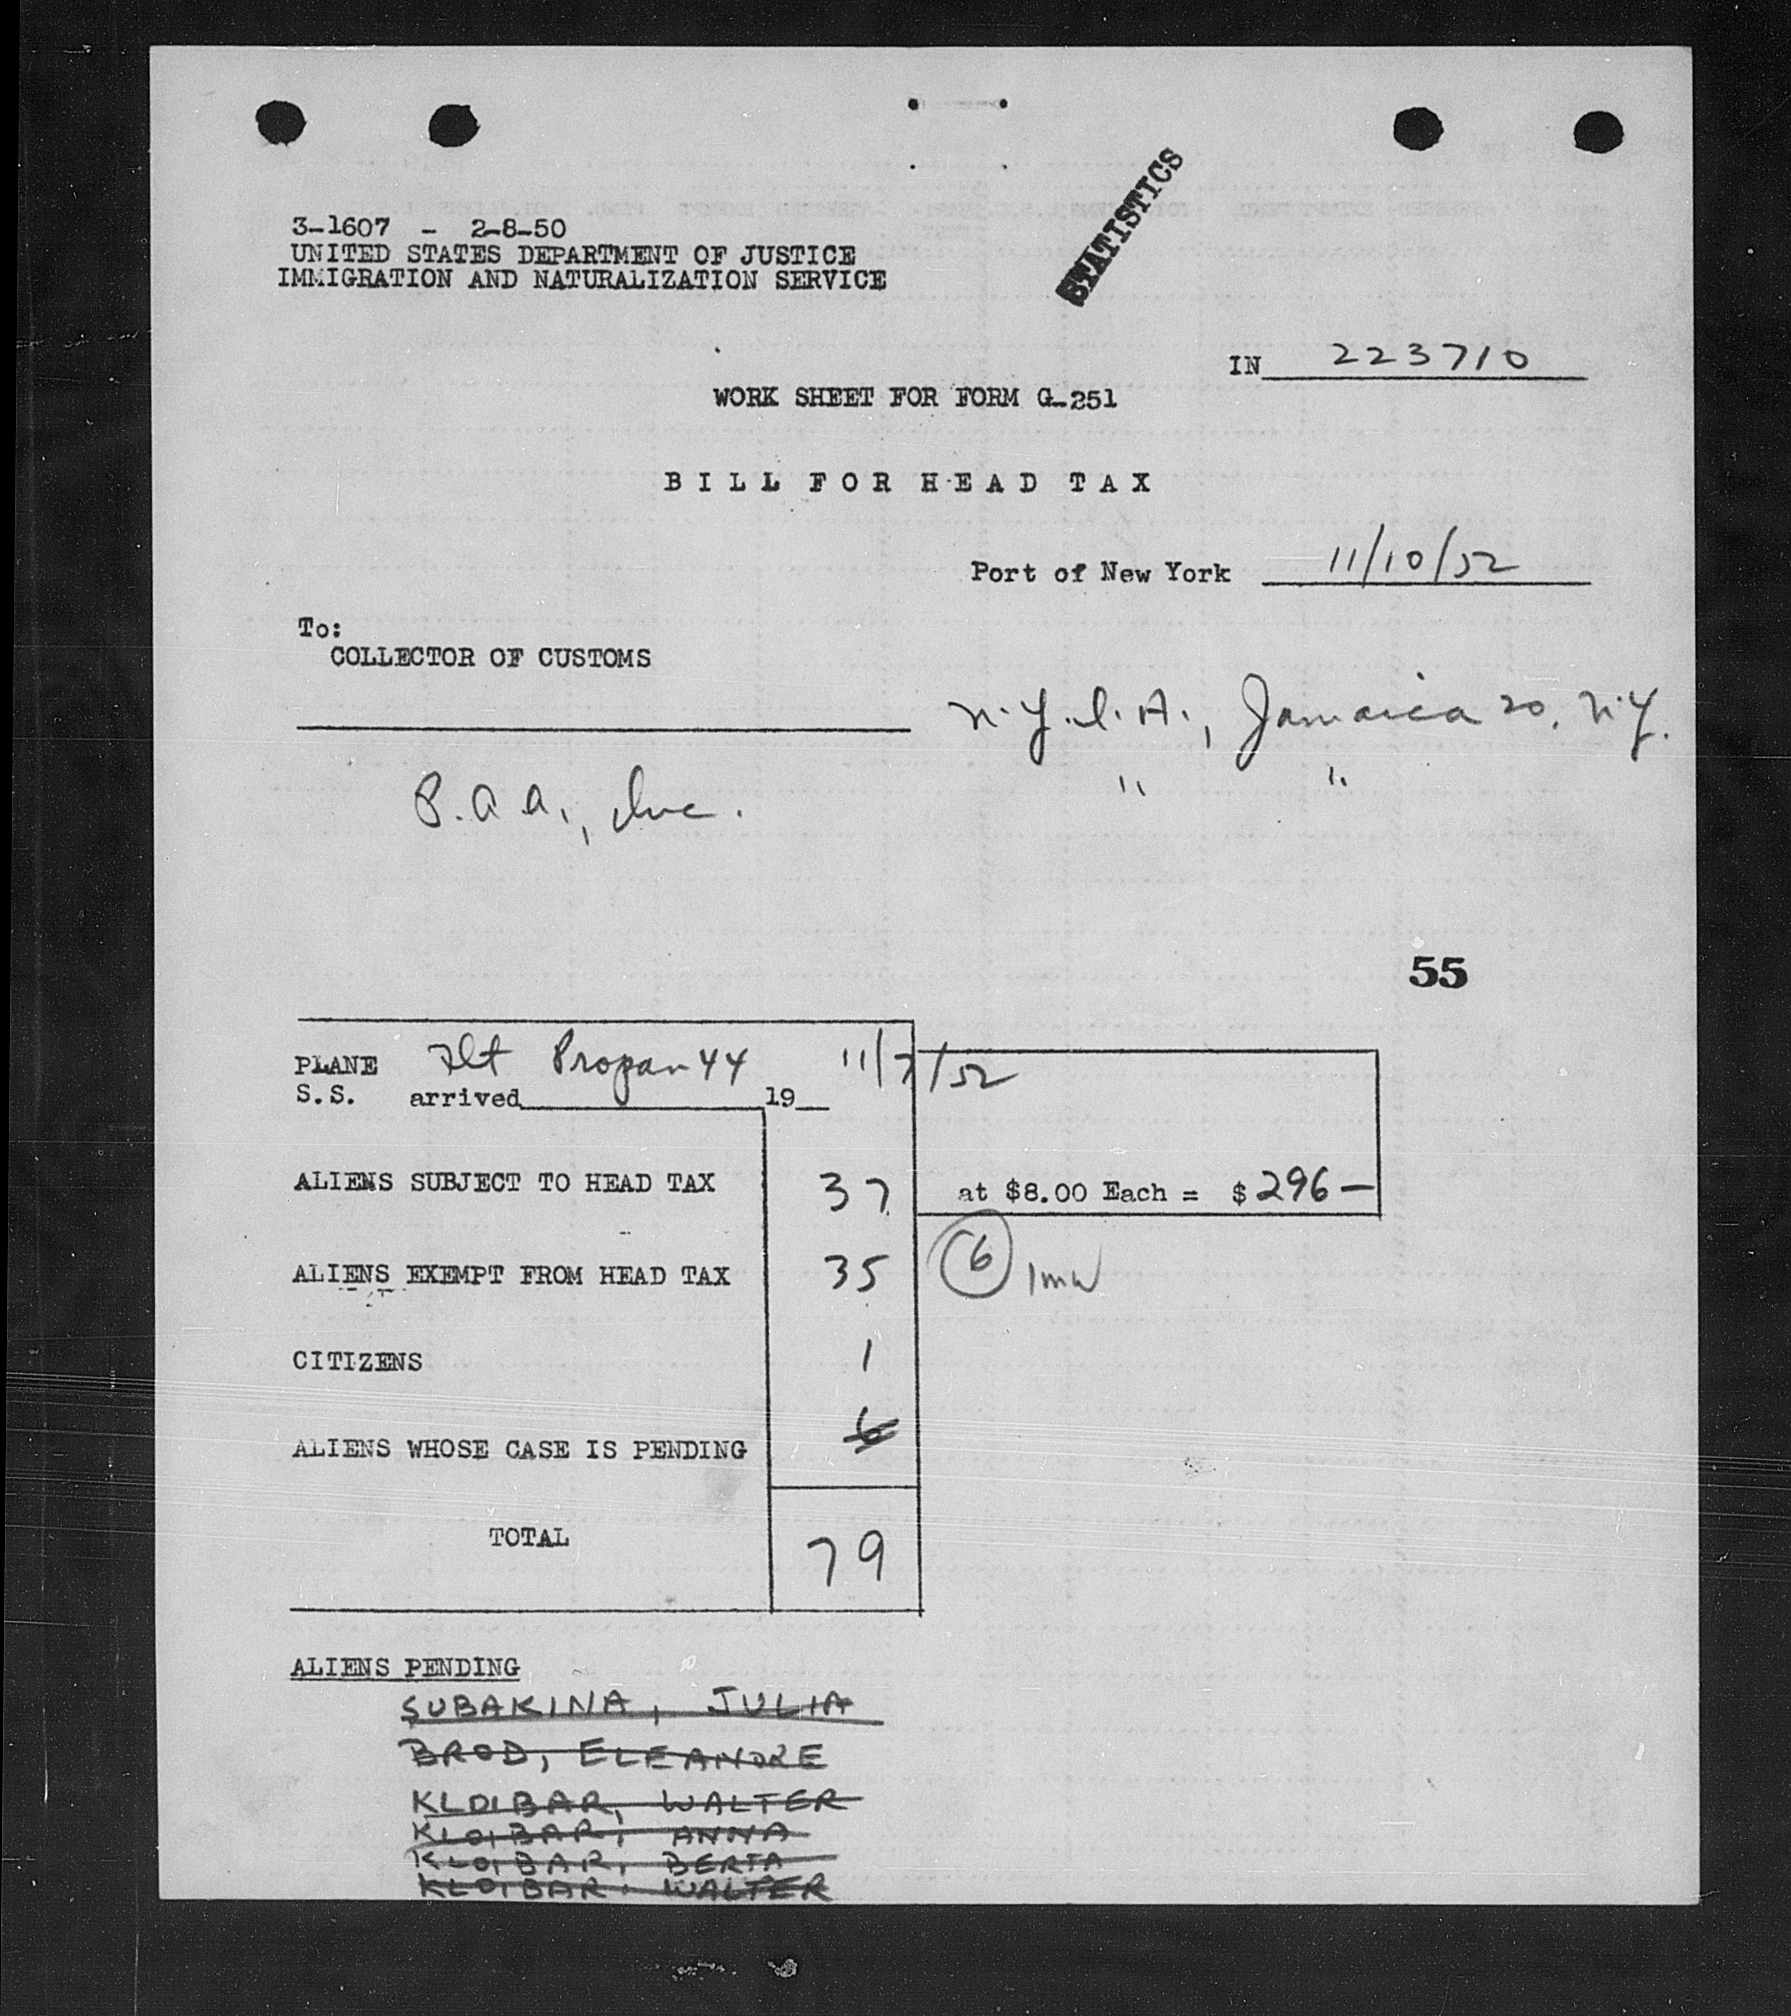 STATISTICS
3-1607 - 2-8-50
UNITED STATES DEPARTMENT OF JUSTICE
IMMIGRATION AND NATURALIZATION SERVICE
IN 223710
WORK SHEET FOR FORM G-251
BILL FOR HEAD TAX
Port of New York 11/10/52
To:
COLLECTOR OF CUSTOMS
N.Y.I.A., Jamaica 20, N.Y.
P.A.A., Inc. " "
55
PLANE Flt Propan 44 11/7/52
S.S. arrived 19
ALIENS SUBJECT TO HEAD TAX 37 at $8.00 Each = $296—
ALIENS EXEMPT FROM HEAD TAX 35 6
CITIZENS 1
ALIENS WHOSE CASE IS PENDING 6
TOTAL 79
ALIENS PENDING
SUBAKINA, JULIA
BROD, ELEANORE
KLOIBAR, WALTER
KLOIBAR, ANNA
KLOIBAR, BERTA
KLOIBAR, WALTER